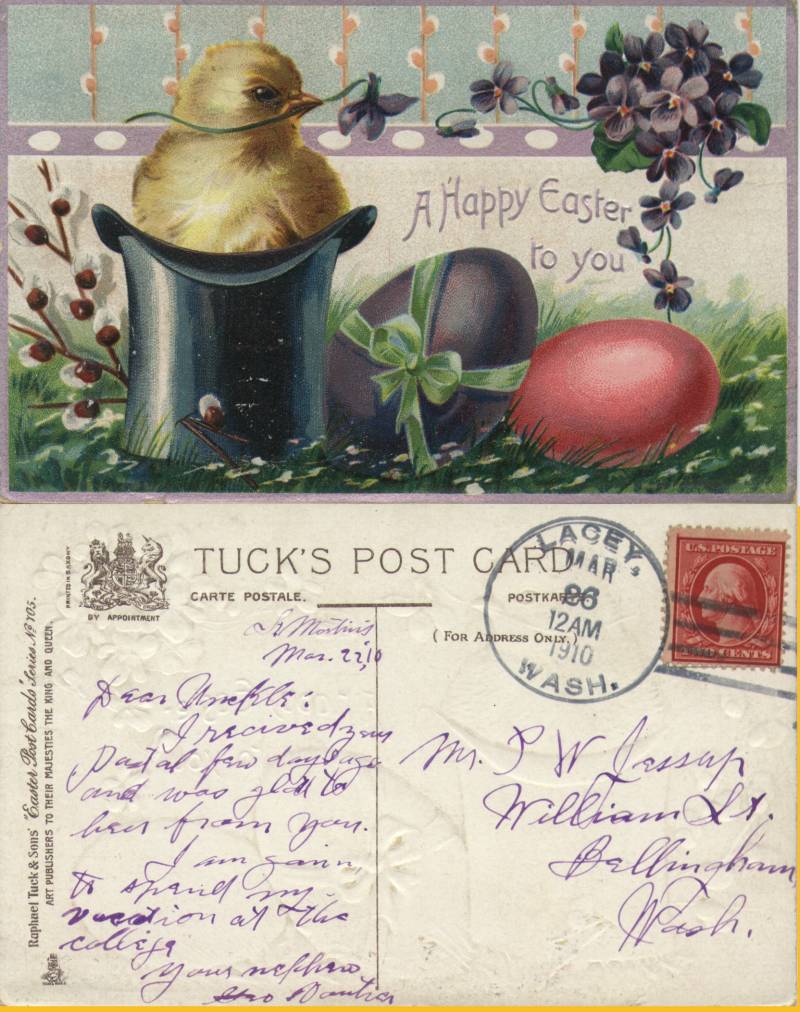 A Happy Easter
to you
TUCK'S POST CARD
CARTE POSTALE.
POSTKARTE
BY APPOINTMENT
PRINTED IN SAXONY
(FOR ADDRESS ONLY.)
LACEY,
MAR
26
12AM
1910
WASH.
U.S. POSTAGE
TWO CENTS
Raphael Tuck & Sons' "Easter Post Cards" Series No 705.
ART PUBLISHERS TO THEIR MAJESTIES THE KING AND QUEEN.
St Martin's
Mar. 22, 10
Dear Unckle:
I recived your
postal few days ago
and was glad to
hear from you.
I am goin
to spend my
vacation at the
college
Your nephew
Geo
Mr. P W Jessup
William St.
Bellingham
Wash.